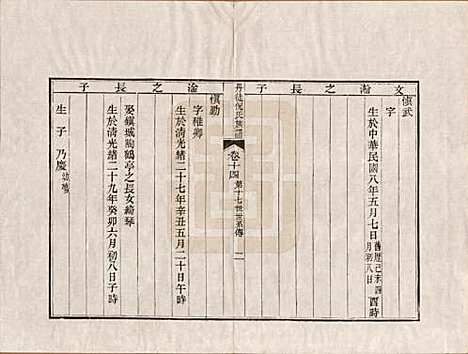 文瀚之長子
慎武
字
生於中華民國八年五月七日舊歷己未四月初八日酉時
丹徒倪氏族譜
卷十四
第十七世世系傳
二
淦之長子
慎勤
字稚卿
生於清光緒二十七年辛丑五月二十日午時
娶鎮城陶鶴亭之長女綺琴
生於清光緒二十九年癸卯六月初八日子時
生子乃慶幼殤